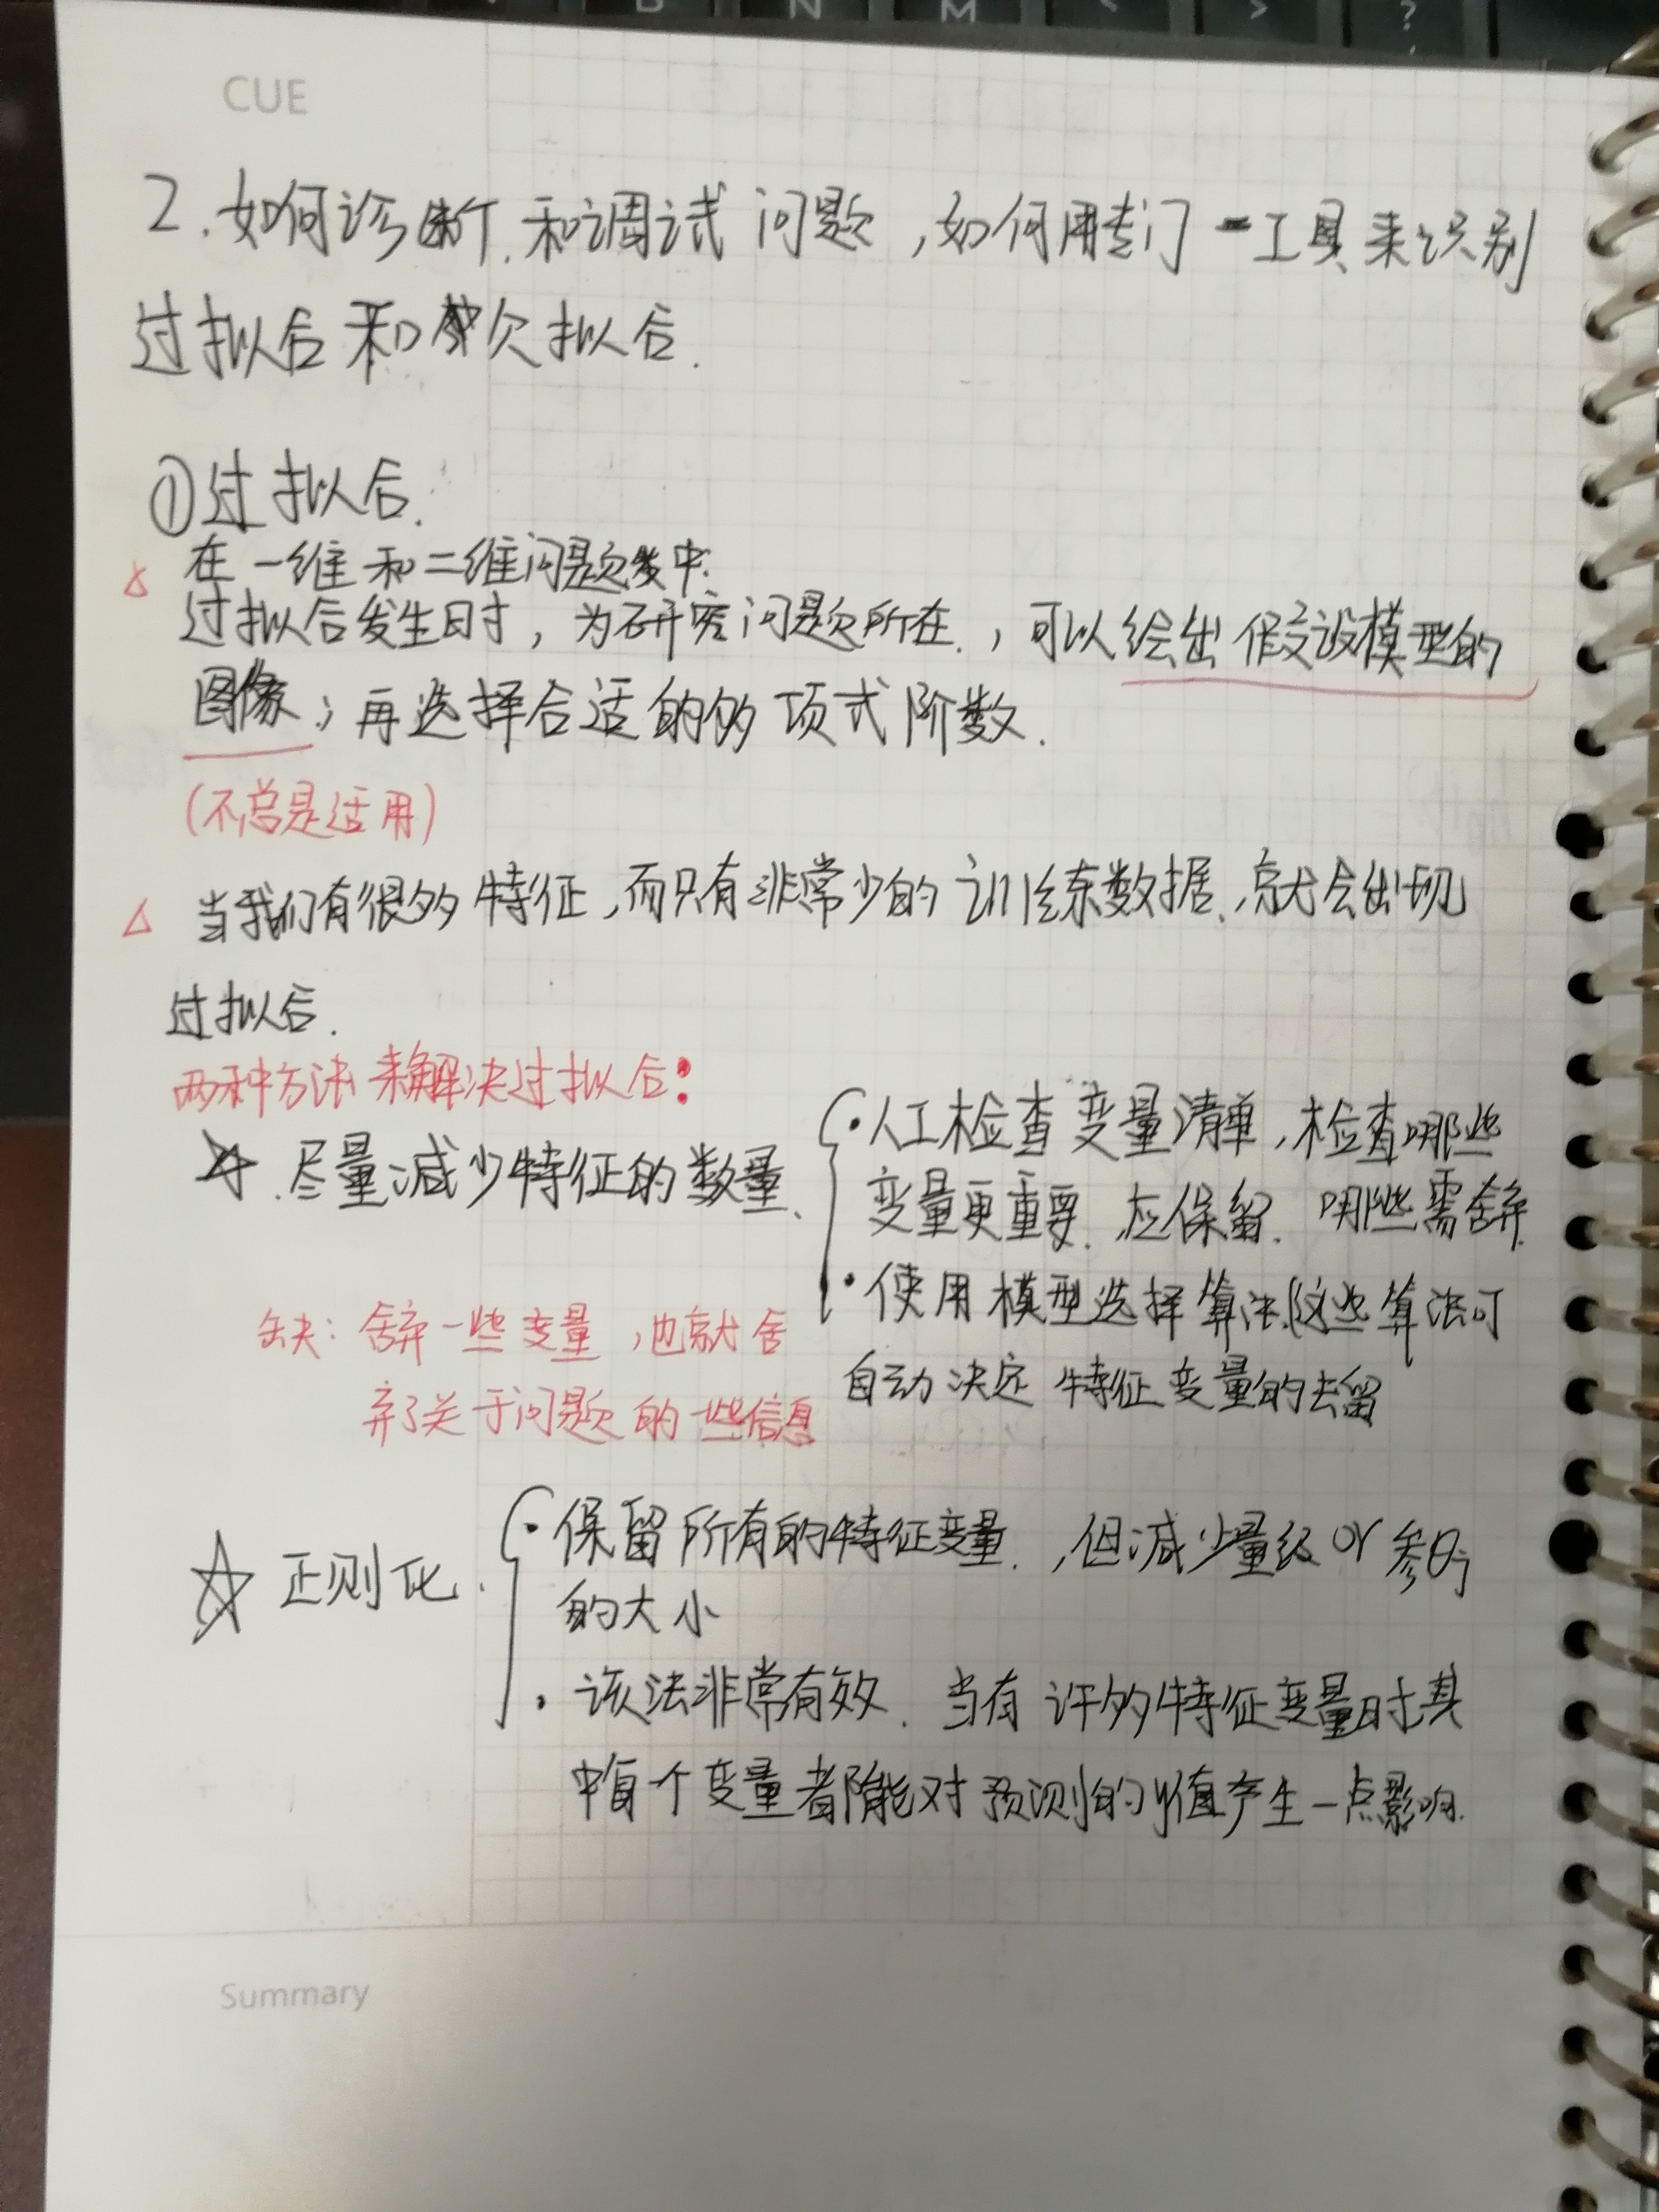 B N M < > ?
CUE
2.如何诊断.和调试问题,如何用专门工具来识别
过拟合和欠拟合.
①过拟合.
△ 在一维和二维问题中:
过拟合发生时,为研究问题所在.,可以绘出假设模型的
图像;再选择合适的多项式阶数.
(不总是适用)
△ 当我们有很多特征,而只有非常少的训练数据.,就会出现
过拟合.
两种方法来解决过拟合:
☆.尽量减少特征的数量、
·人工检查变量清单,检查哪些
变量更重要.应保留.哪些需舍弃.
·使用模型选择算法(这些算法可
自动决定特征变量的去留
缺:舍弃一些变量,也就舍
弃了关于问题的一些信息
☆ 正则化.
·保留所有的特征变量.,但减少量级or参θj
的大小
·该法非常有效.当有许多特征变量时其
中每个变量都能对预测的y值产生一点影响.
Summary